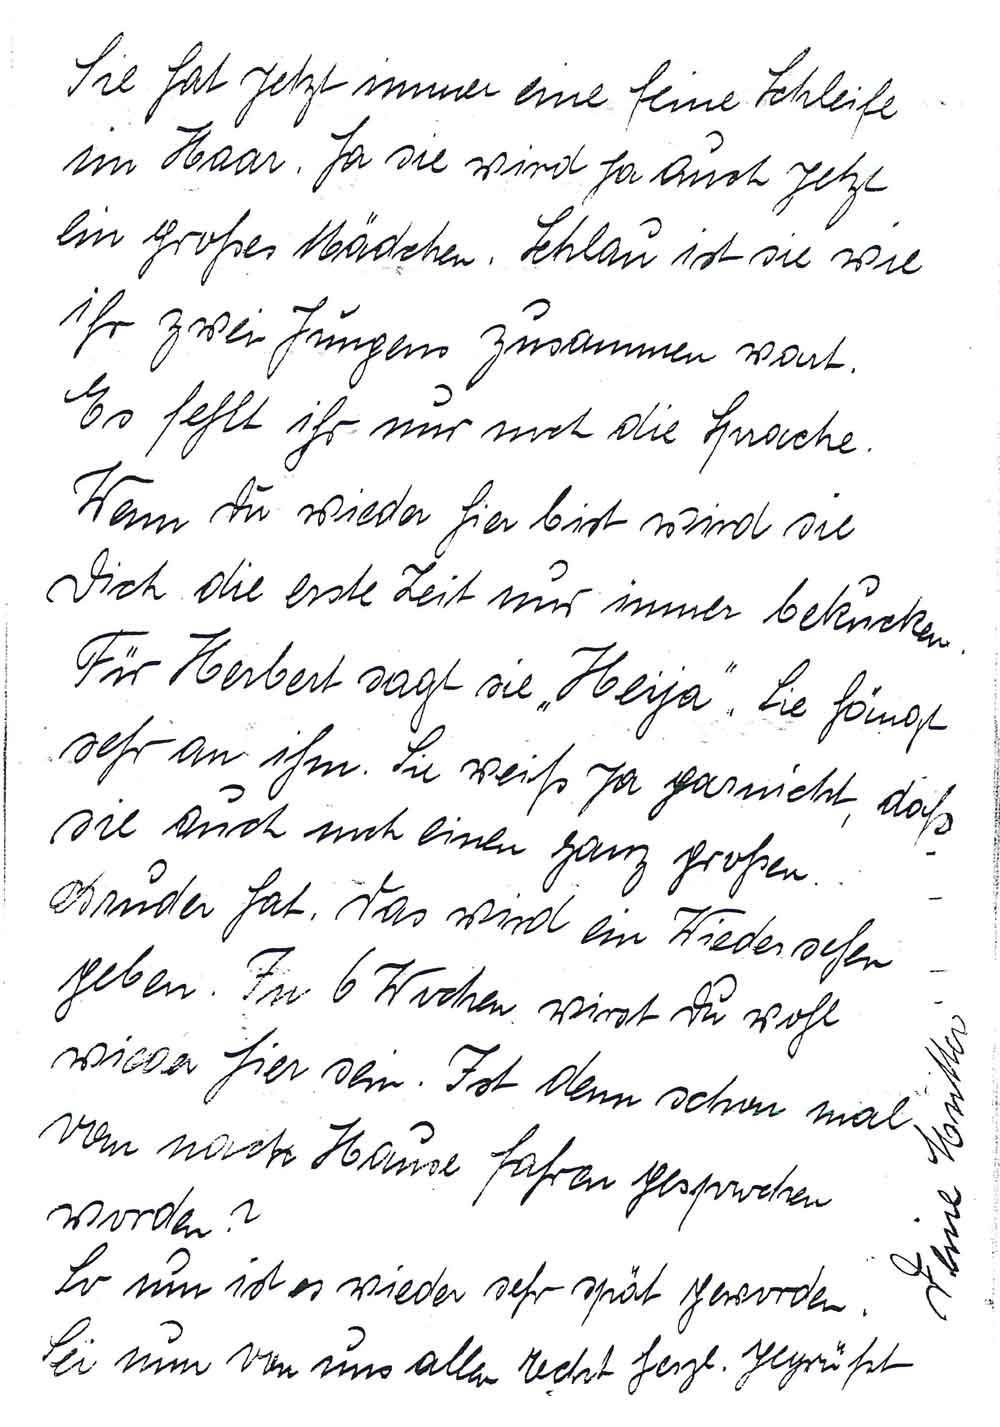 Sie hat jetzt immer eine feine Schleife
im Haar. Ja sie wird ja auch jetzt
ein großes Mädchen. Schlau ist sie wie
ihr zwei Jungens zusammen wart.
Es fehlt ihr nur noch die Sprache.
Wenn Du wieder hier bist wird sie
Dich die erste Zeit nur immer bekucken.
Für Herbert sagt sie „Heija". Sie hängt
sehr an ihm. Sie weiß ja garnicht, daß
sie auch noch einen ganz großen
Bruder hat. Das wird ein Wiedersehen
geben. In 6 Wochen wirst Du wohl
wieder hier sein. Ist denn schon mal
von nach Hause fahren gesprochen
worden?
So nun ist es wieder sehr spät geworden.
Sei nun von uns allen recht herzl. gegrüßt
Deine Mutter